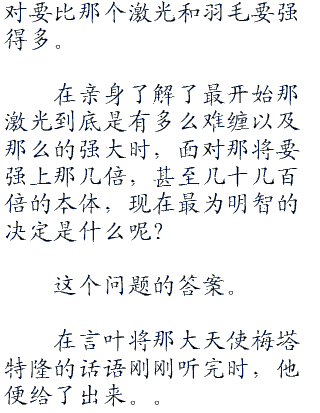 对要比那个激光和羽毛要强
得多。
在亲身了解了最开始那
激光到底是有多么难缠以及
那么的强大时，面对那将要
强上那几倍，甚至几十几百
倍的本体，现在最为明智的
决定是什么呢？
这个问题的答案。
在言叶将那大天使梅塔
特隆的话语刚刚听完时，他
便给了出来。。